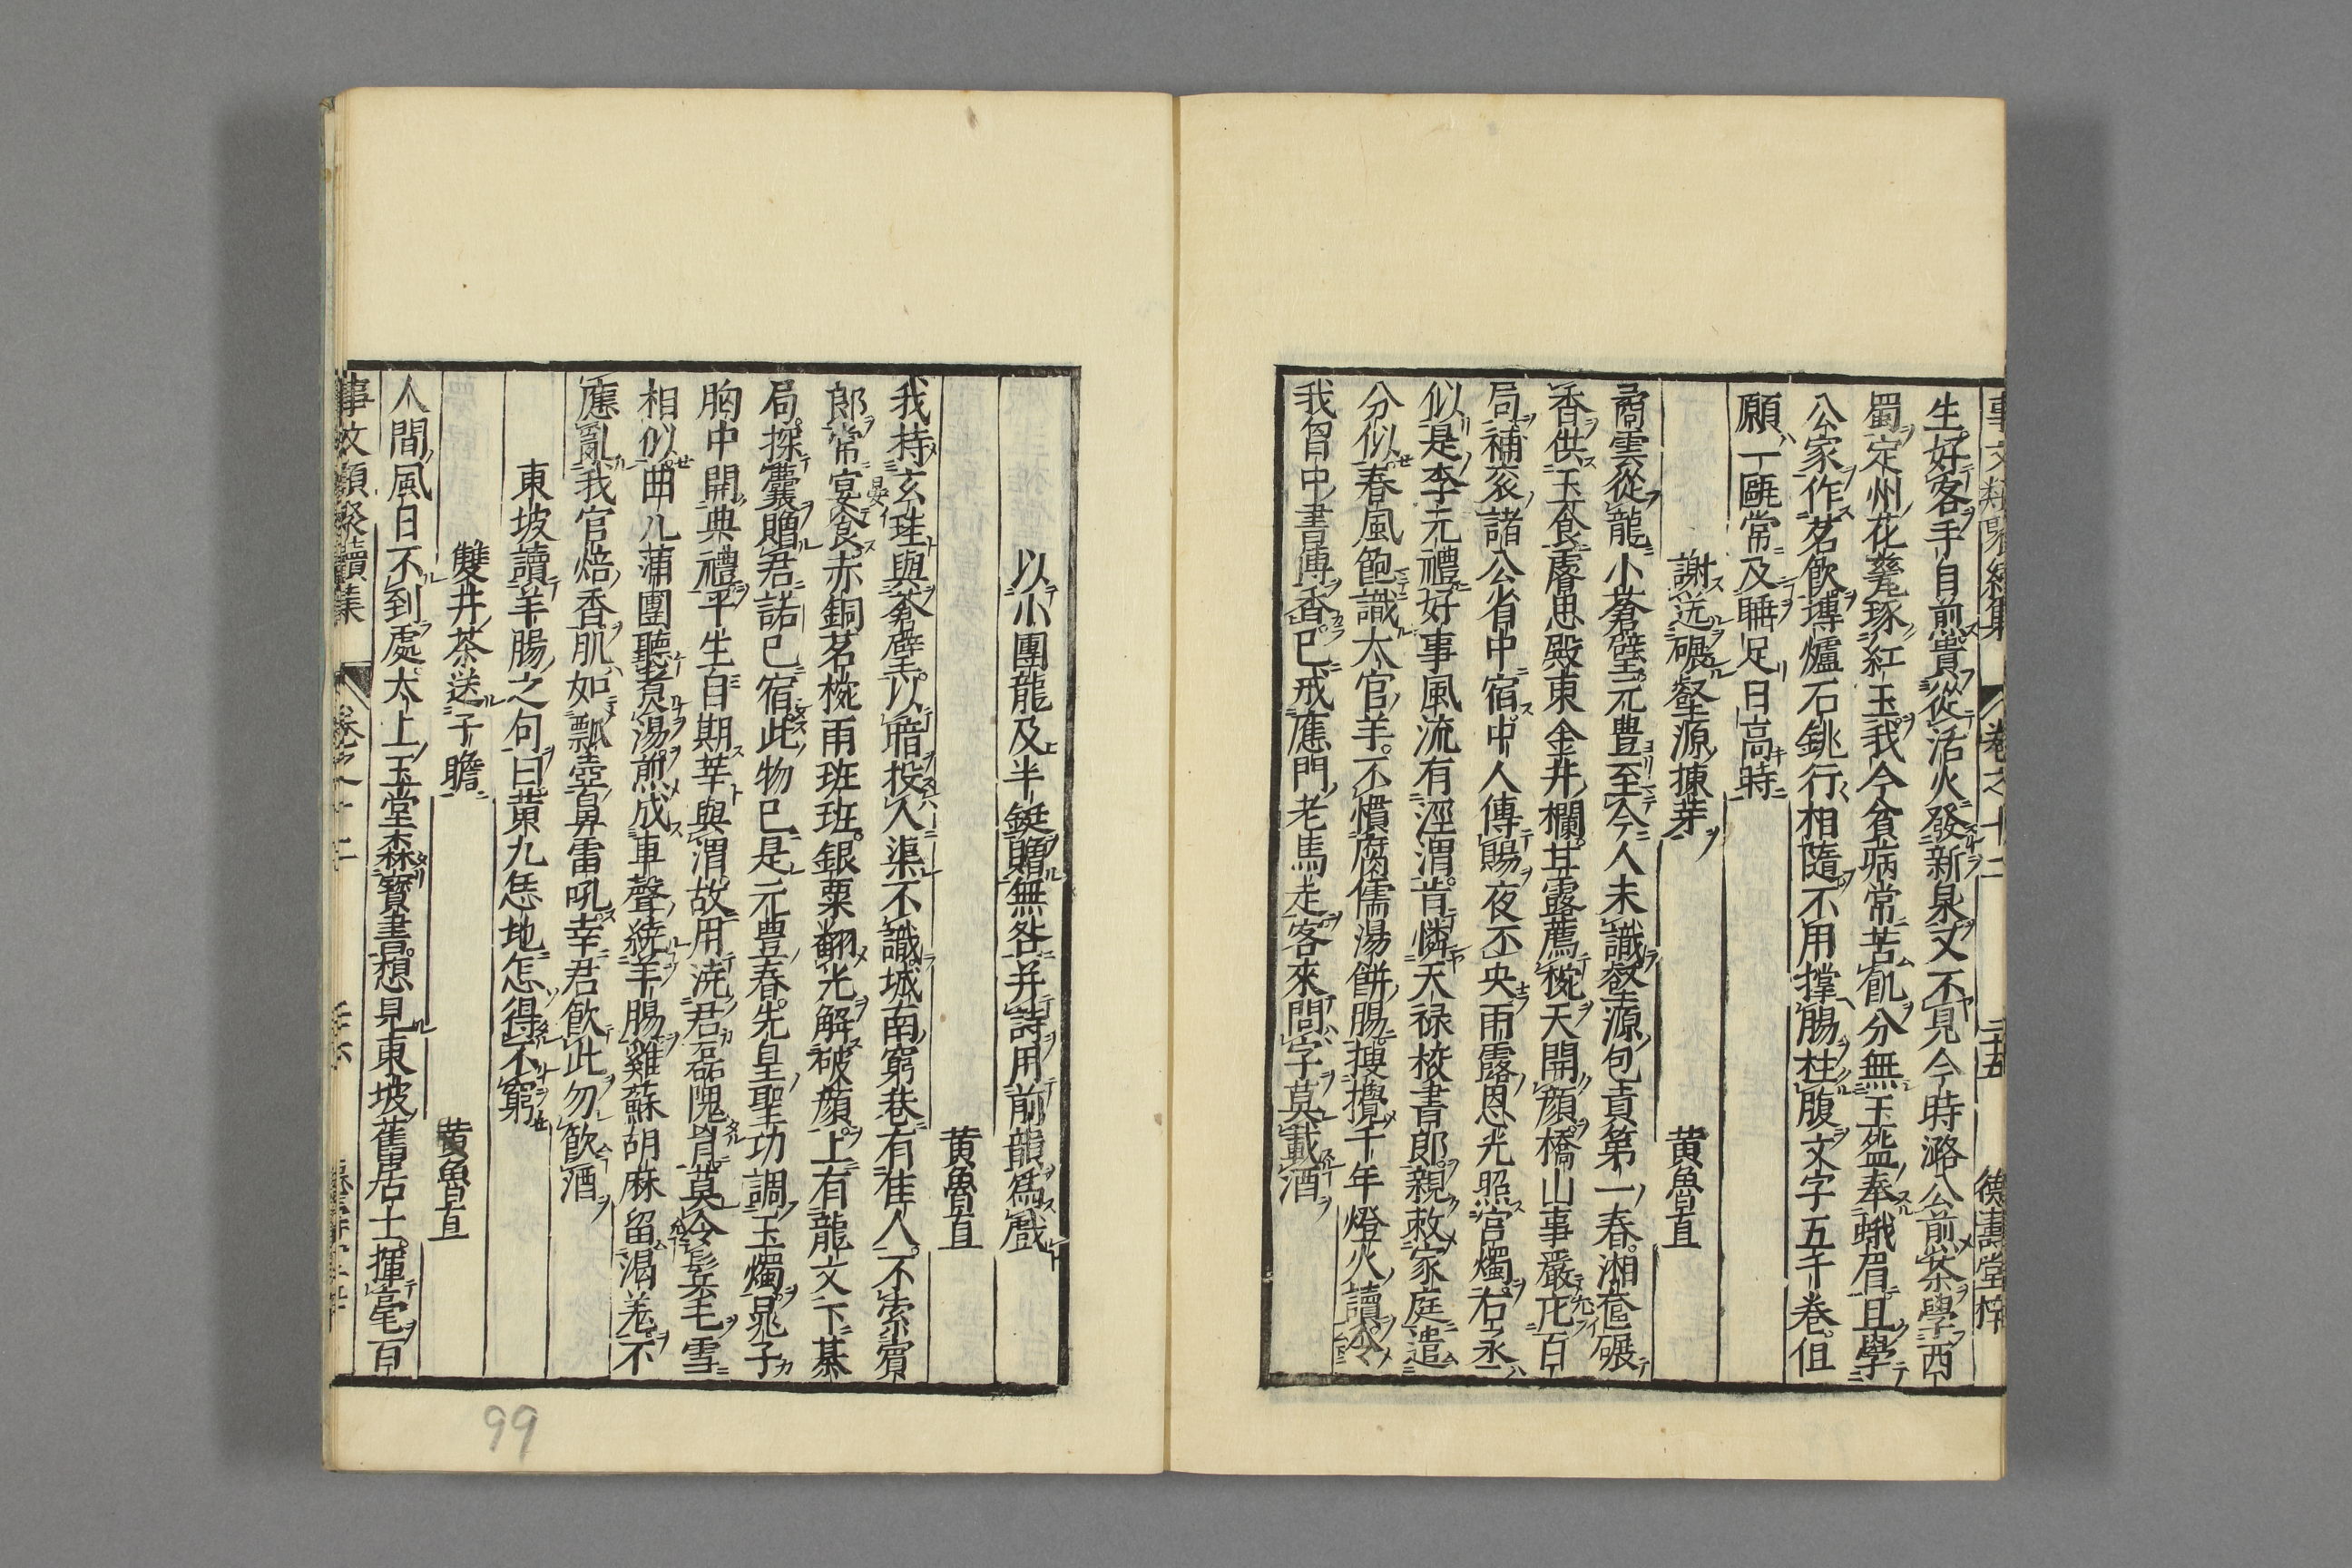 事文類聚續集 卷之十二 二十五 德壽堂梓
生好客手自煎貴從活火發新泉又不見今時潞公煎茶學西
蜀定州花甆琢紅玉我今貧病常苦飢分無玉盌奉蛾眉且學
公家作茗飲塼爐石銚行相隨不用撑腸柱腹文字五千卷但
願一甌常及睡足日高時
謝送碾壑源揀芽
黃魯直
矞雲從龍小蒼璧元豊至今人未識壑源包貢第一春湘奩碾
香供玉食睿思殿東金井欄甘露薦椀天開顔橋山事嚴庀百
局補衮諸公省中宿中人傳賜夜丕央雨露恩光照宮燭右丞
似是李元禮好事風流有涇渭肯憐天禄校書郎親敕家庭遣
分似春風飽識太官羊不慣腐儒湯餅腸搜攪千年燈火讀令
我胷中書傳香已戒應門老馬走客來問字莫載酒
以小團龍及半鋌贈無咎并詩用前韻爲戲
黃魯直
我持玄珪與蒼璧以暗投人渠不識城南窮巷有佳人不索賓
郎常宴食赤銅茗椀雨班班銀粟翻光解破顔上有龍文下棊
局探囊贈君諾已宿此物已是元豊春先皇聖功調玉燭晁子
胸中開典禮平生自期莘與渭故用澆君磊隗肖莫令鬂毛雪
相似曲几蒲團聽煮湯煎成車聲繞羊腸雞蘇胡麻留渴羌不
應亂我官焙香肌如瓠壺鼻雷吼幸君飲此勿飲酒
東坡讀羊腸之句曰黃九恁地怎得不窮
雙井茶送子瞻
黃魯直
人間風日不到處太上玉堂森寶書想見東坡舊居士揮毫百
事文類聚續集 卷之十二